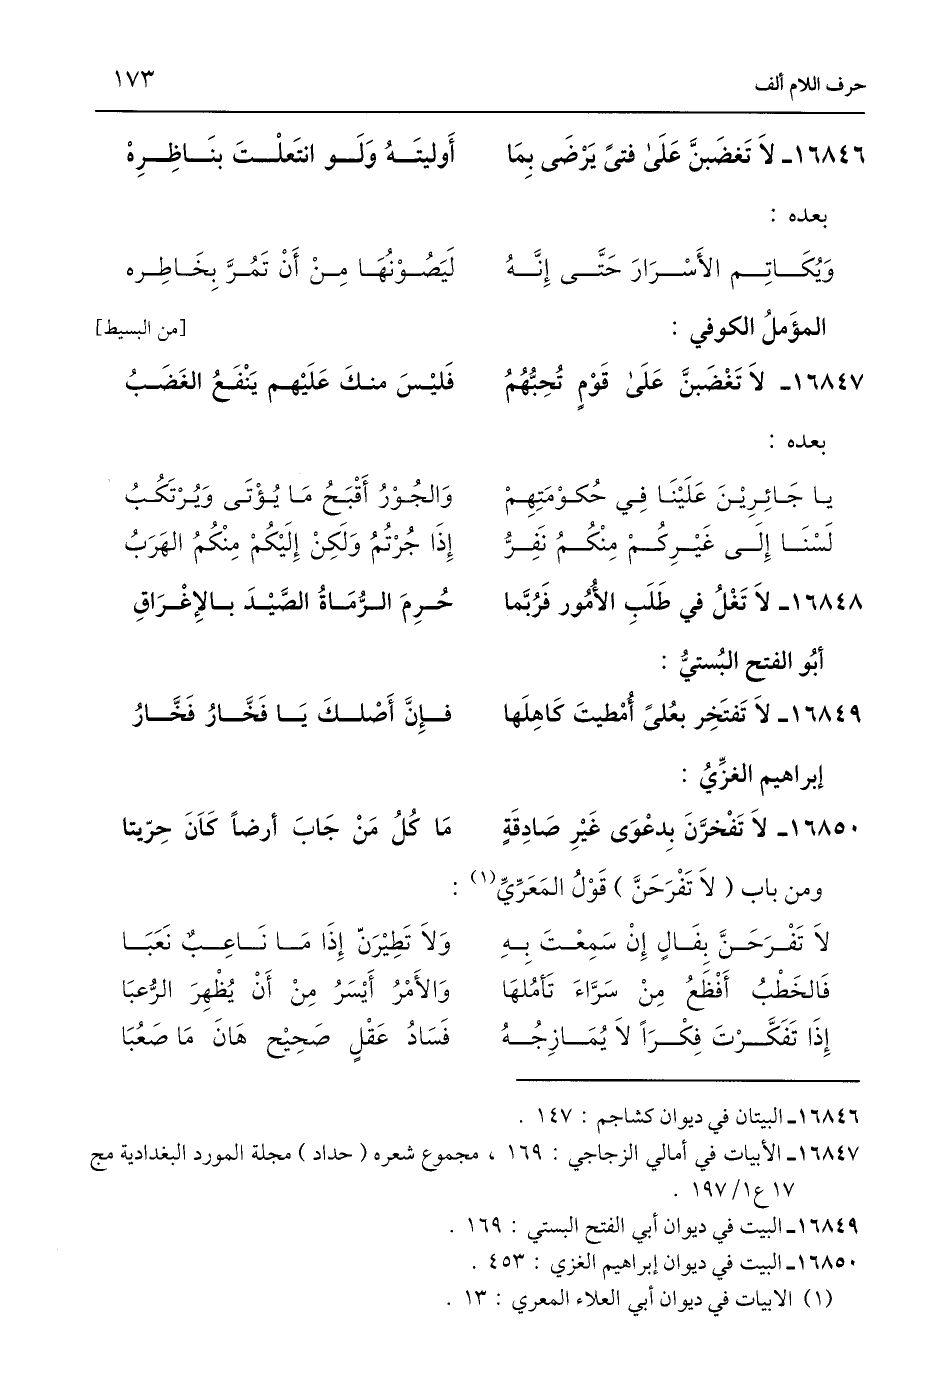 حرف اللام ألف ١٧٣
١٦٨٤٦ـ لاَ تَغضَبنَّ عَلَىٰ فتىً يَرْضَى بِمَا أَوليتَـهُ وَلَـو انتَعلْـتَ بنَـاظِـرِهْ
بعده :
وَيُكَـاتِـم الأَسْـرَارَ حَتَّـى إِنَّـهُ لَيَصُـوْنُهَـا مِـنْ أَنْ تَمُـرَّ بِخَـاطِـره
المؤَملُ الكوفي : [من البسيط]
١٦٨٤٧ـ لاَ تَغْضَبنَّ عَلَىٰ قَوْمٍ تُحِبُّهُمُ فَليْسَ منـكَ عَلَيْهـم يَنْفَـعُ الغَضَـبُ
بعده :
يـا جَـائِـرِيْـنَ عَلَيْنَـا فِـي حُكـوْمَتِهِـمْ وَالجُـوْرُ أَقْبَـحُ مَـا يُـؤْتَـى وَيُـرْتكَـبُ
لَسْنَـا إِلَـى غَيْـرِكُـمْ مِنْكُـمُ نَفِـرُّ إِذَا جُرْتُمُ وَلَكِنْ إِلَيْكُمْ مِنْكُمُ الهَرَبُ
١٦٨٤٨ـ لاَ تَغْلُ في طَلَبِ الأُمُور فَرُبَّما حُـرِمَ الـرُّمَـاةُ الصَّيْـدَ بـالإِغْـرَاقِ
أَبُو الفتح البُستيُّ :
١٦٨٤٩ـ لاَ تَفتَخِر بعُلىً أُمْطيتَ كَاهِلَها فـإِنَّ أَصْلـكَ يَـا فَخَّـارُ فَخَّـارُ
إبراهيم الغزِّيُ :
١٦٨٥٠ـ لاَ تَفْخرَنَّ بِدعْوَى غَيْرِ صَادِقَةٍ مَا كُلُ مَنْ جَابَ أرضاً كَانَ حِرّيتا
ومن باب ( لاَ تَفْرَحَنَّ ) قَوْلُ المَعَرِّيِّ(١) :
لاَ تَفْـرَحَـنَّ بِفَـالٍ إِنْ سَمِعْـتَ بِـهِ وَلاَ تَطِيْرَنّ إِذَا مَـا نَـاعِـبٌ نَعَبَـا
فَالخَطْبُ أَفْظَعُ مِنْ سَرَّاءَ تَأمُلهَا وَالأَمْرُ أَيْسَرُ مِنْ أَنْ يُظْهِرَ الرُّعبَا
إِذَا تَفَكَّـرْتَ فِكْـرَاً لاَ يُمَـازِجُـهُ فَسَادُ عَقْلٍ صَحِيْحٍ هَانَ مَا صَعُبَا
١٦٨٤٦ـ البيتان في ديوان كشاجم : ١٤٧ .
١٦٨٤٧ـ الأبيات في أمالي الزجاجي : ١٦٩ ، مجموع شعره ( حداد ) مجلة المورد البغدادية مج
١٧ ع١/ ١٩٧ .
١٦٨٤٩ـ البيت في ديوان أبي الفتح البستي : ١٦٩ .
١٦٨٥٠ـ البيت في ديوان إبراهيم الغزي : ٤٥٣ .
(١) الابيات في ديوان أبي العلاء المعري : ١٣ .